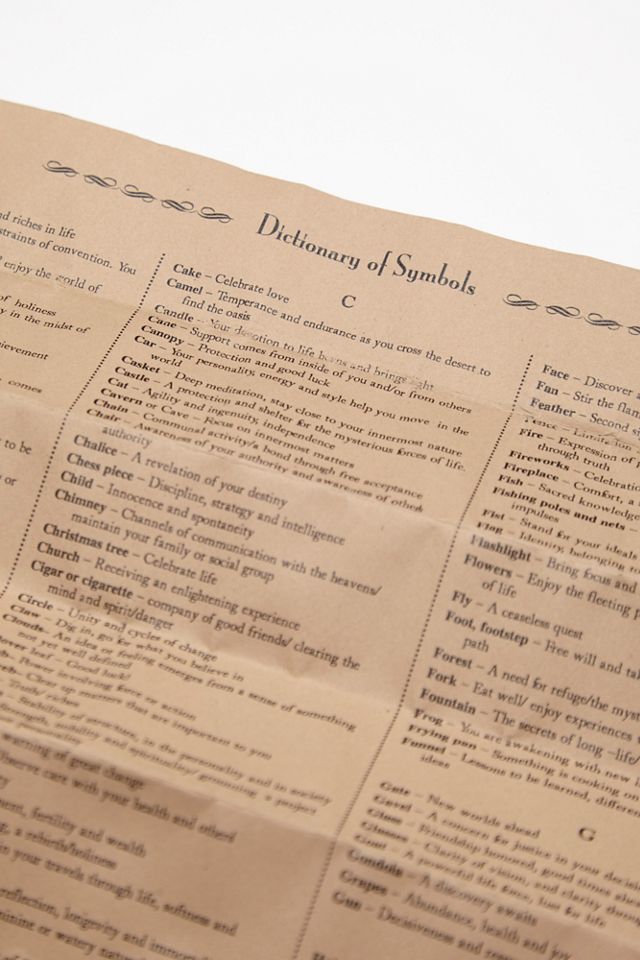 Dictionary of Symbols
nd riches in life
straints of convention. You
enjoy the world of
of holiness
y in the midst of
ievement
comes
to be
or
C
Cake – Celebrate love
Camel – Temperance and endurance as you cross the desert to
find the oasis
Candle – Your devotion to life burns and brings light
Cane – Support comes from inside of you and/or from others
Canopy – Protection and good luck
Car – Your personality, energy and style help you move in the
world
Casket – Deep meditation, stay close to your innermost nature
Castle – A protection and shelter for the mysterious forces of life.
Cat – Agility and ingenuity, independence
Cavern or Cave – Focus on innermost matters
Chain – Communal activity/a bond through free acceptance
Chair – Awareness of your authority and awareness of others
authority
Chalice – A revelation of your destiny
Chess piece – Discipline, strategy and intelligence
Child – Innocence and spontaneity
Chimney – Channels of communication with the heavens/
maintain your family or social group
Christmas tree – Celebrate life
Church – Receiving an enlightening experience
Cigar or cigarette – company of good friends/ clearing the
mind and spirit/danger
Circle – Unity and cycles of change
Claw – Dig in, go for what you believe in
Clouds – An idea or feeling emerges from a sense of something
not yet well defined
over leaf – Good luck!
– Power involving force or action
– Clear up matters that are important to you
– Truth/ riches
– Stability of structure, in the personality and in society
Strength, stability and spirituality/ grounding a project
warning of great change
bserve care with your health and others'
ment, fertility and wealth
g, a rebirth/holiness
in your travels through life, softness and
reflection, longevity and
minine or watery
Face – Discover a
Fan – Stir the flam
Feather – Second si
Fence – Limitation
Fire – Expression of
through truth
Fireworks – Celebratio
Fireplace – Comfort, a
Fish – Sacred knowledge
Fishing poles and nets –
impulses
Fist – Stand for your ideals
Flag – Identity, belonging to
Flashlight – Bring focus and
Flowers – Enjoy the fleeting p
of life
Fly – A ceaseless quest
Foot, footstep – Free will and tak
path
Forest – A need for refuge/the myst
Fork – Eat well/ enjoy experiences
Fountain – The secrets of long –life/
Frog – You are awakening with new li
Frying pan – Something is cooking on
Funnel – Lessons to be learned, differen
ideas
G
Gate – New worlds ahead
Gavel – A concern for justice in your decisi
Glass – Friendship honored, good times ahead
Glasses – Clarity of vision, and clarity through
Goat – A powerful life force, lust for life
Gondola – A discovery awaits
Grapes – Abundance, health and joy
Gun – Decisiveness and